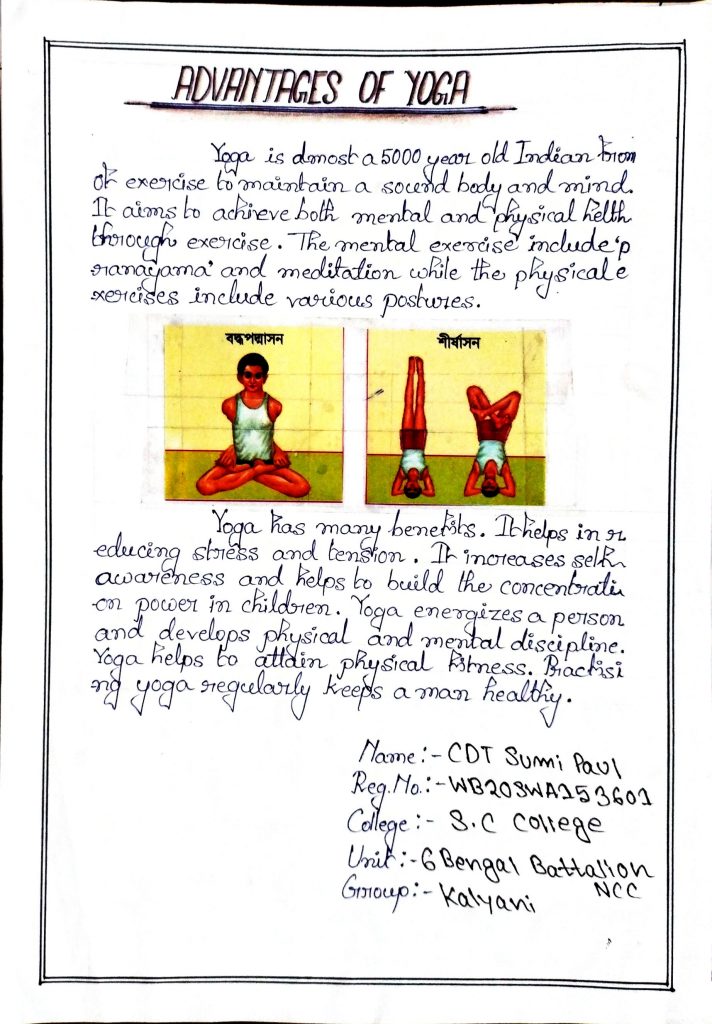 ADVANTAGES OF YOGA
Yoga is almost a 5000 year old Indian from
of exercise to maintain a sound body and mind.
It aims to achieve both mental and physical helth
through exercise. The mental exercise include 'p
ranayama' and meditation while the physical e
xercises include various postures.
বদ্ধপদ্মাসন
শীর্ষাসন
Yoga has many benefits. It helps in r
educing stress and tension. It increases self
awareness and helps to build the concentrati
-on power in children. Yoga energizes a person
and develops physical and mental discipline.
Yoga helps to attain physical fitness. Practisi
ng yoga regularly keeps a man healthy.
Name:- CDT Sumi Paul
Reg.No.:- WB20SWA153601
College:- S.C College
Unit:- 6 Bengal Battalion
NCC
Group:- Kalyani